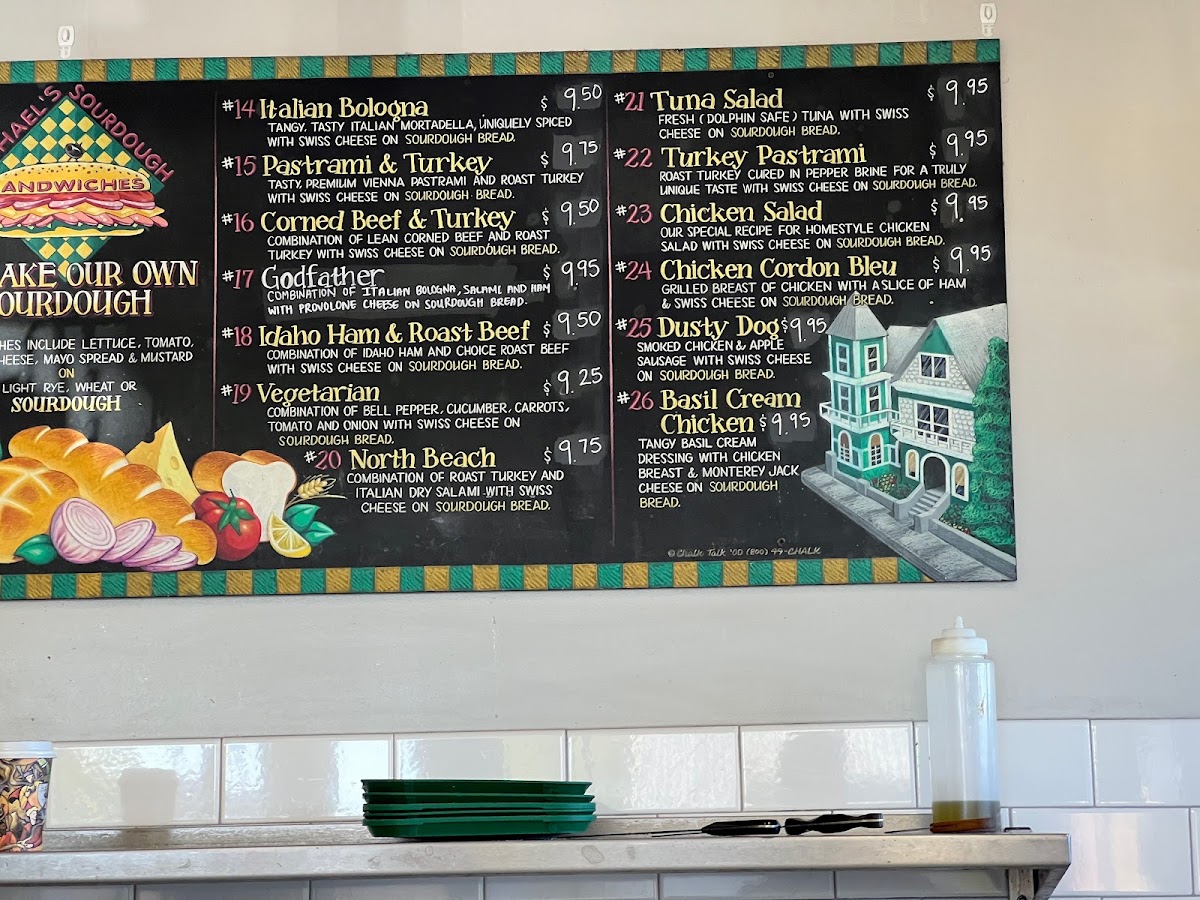 SOURDOUGH
ANDWICHES
OUR OWN
LETTUCE, TOMATO,
MAYO SPREAD & MUSTARD
ON
LIGHT RYE, WHEAT OR
SOURDOUGH
#14 Italian Bologna $ 9.50
TANGY, TASTY ITALIAN MORTADELLA, UNIQUELY SPICED
WITH SWISS CHEESE ON SOURDOUGH BREAD.
#15 Pastrami & Turkey $ 9.75
TASTY, PREMIUM VIENNA PASTRAMI AND ROAST TURKEY
WITH SWISS CHEESE ON SOURDOUGH BREAD.
#16 Corned Beef & Turkey $ 9.50
COMBINATION OF LEAN CORNED BEEF AND ROAST
TURKEY WITH SWISS CHEESE ON SOURDOUGH BREAD.
#17 Godfather $ 9.95
COMBINATION OF ITALIAN BOLOGNA, SALAMI AND HAM
WITH PROVOLONE CHEESE ON SOURDOUGH BREAD.
#18 Idaho Ham & Roast Beef $ 9.50
COMBINATION OF IDAHO HAM AND CHOICE ROAST BEEF
WITH SWISS CHEESE ON SOURDOUGH BREAD.
#19 Vegetarian $ 9.25
COMBINATION OF BELL PEPPER, CUCUMBER, CARROTS,
TOMATO AND ONION WITH SWISS CHEESE ON
SOURDOUGH BREAD.
#20 North Beach $ 9.75
COMBINATION OF ROAST TURKEY AND
ITALIAN DRY SALAMI WITH SWISS
CHEESE ON SOURDOUGH BREAD.
#21 Tuna Salad $ 9.95
FRESH (DOLPHIN SAFE) TUNA WITH SWISS
CHEESE ON SOURDOUGH BREAD.
#22 Turkey Pastrami $ 9.95
ROAST TURKEY CURED IN PEPPER BRINE FOR A TRULY
UNIQUE TASTE WITH SWISS CHEESE ON SOURDOUGH BREAD.
#23 Chicken Salad $ 9.95
OUR SPECIAL RECIPE FOR HOMESTYLE CHICKEN
SALAD WITH SWISS CHEESE ON SOURDOUGH BREAD.
#24 Chicken Cordon Bleu $ 9.95
GRILLED BREAST OF CHICKEN WITH A SLICE OF HAM
& SWISS CHEESE ON SOURDOUGH BREAD.
#25 Dusty Dog $9.95
SMOKED CHICKEN & APPLE
SAUSAGE WITH SWISS CHEESE
ON SOURDOUGH BREAD.
#26 Basil Cream
Chicken $9.95
TANGY BASIL CREAM
DRESSING WITH CHICKEN
BREAST & MONTEREY JACK
CHEESE ON SOURDOUGH
BREAD.
© Chalk Talk '00 (800) 49-CHALK